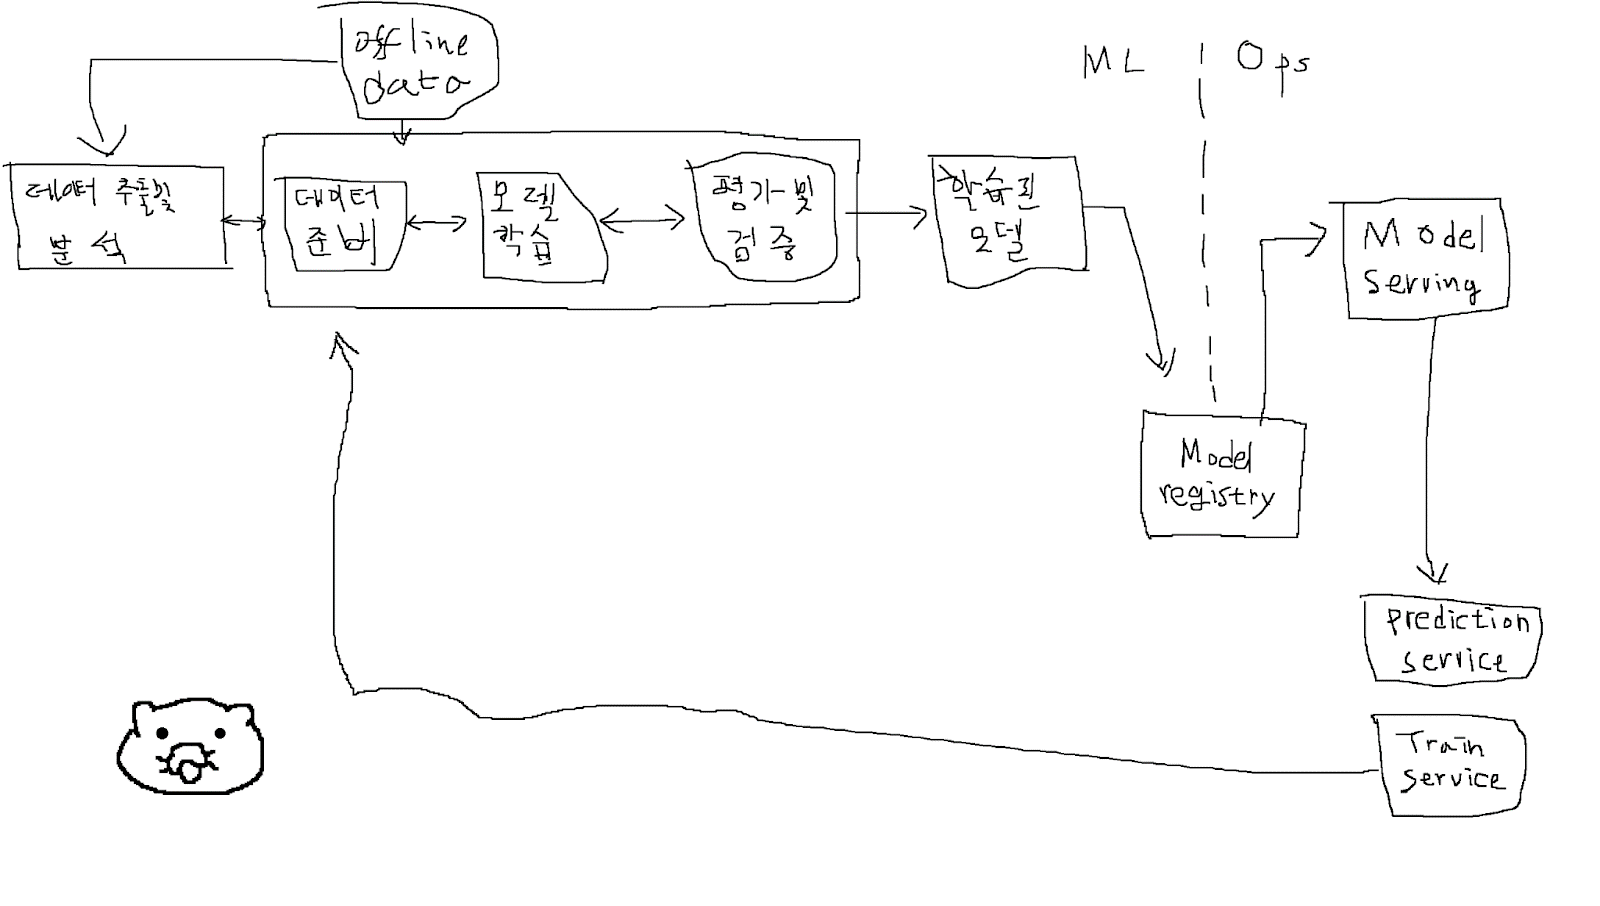 offline
data
ML
Ops
데이터 추출및
분석
데이터
준비
모델
학습
평가 및
검증
학습된
모델
Model
serving
Model
registry
prediction
service
Train
service